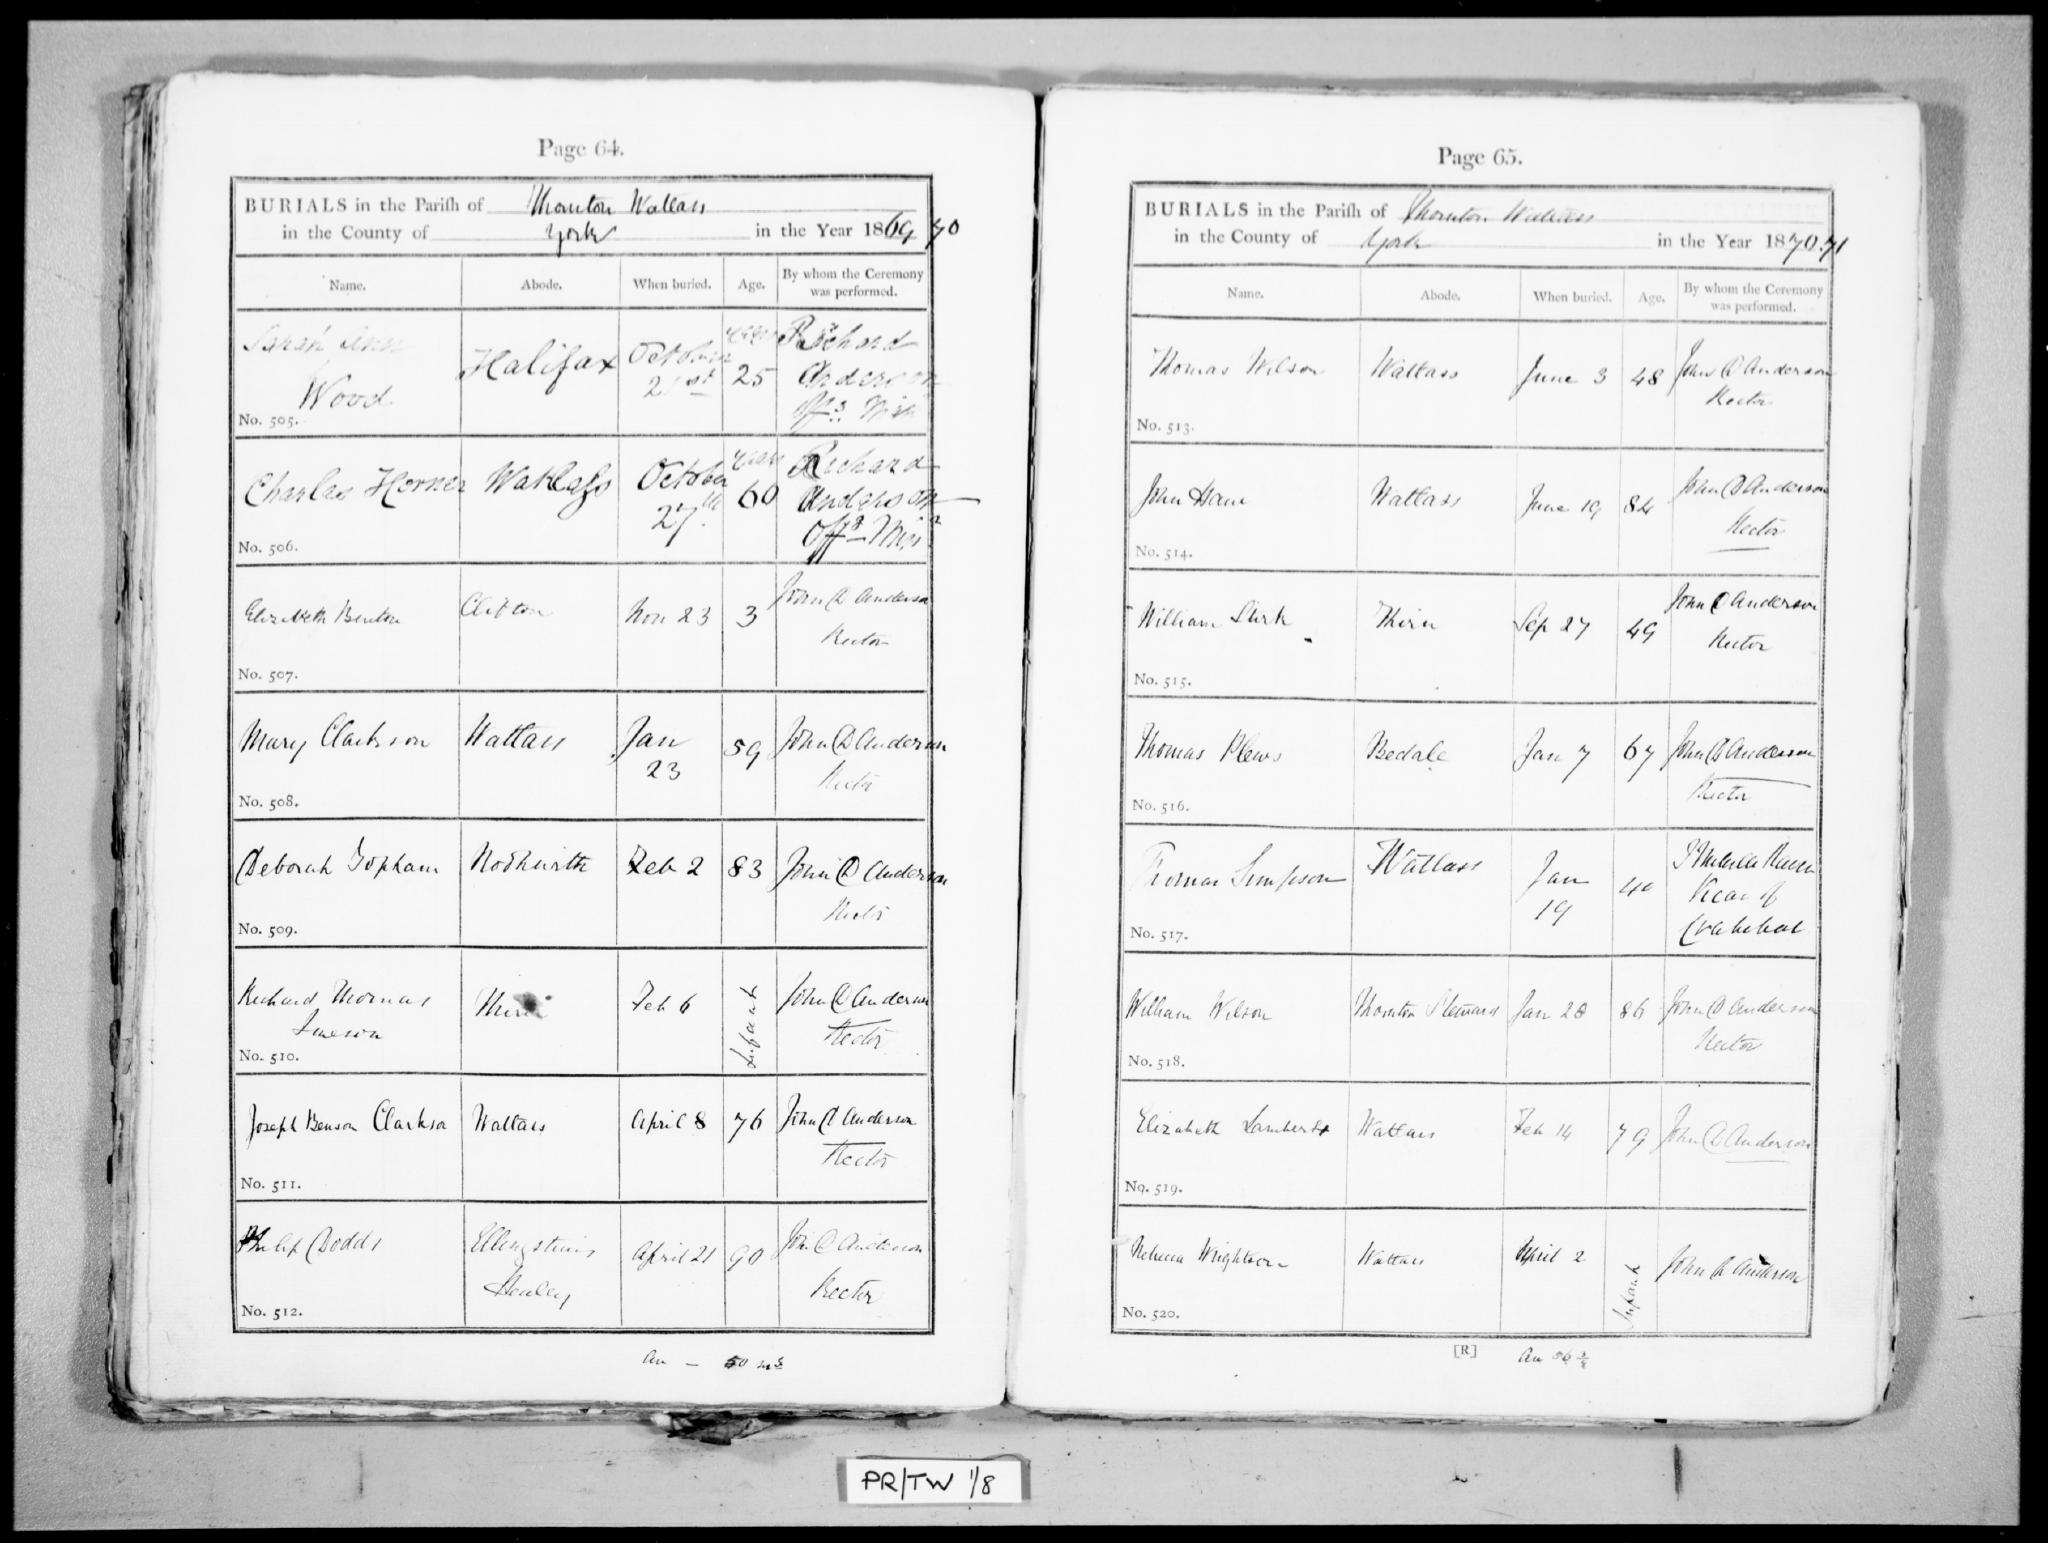 Page 64.
BURIALS in the Parish of Thornton Watlass
in the County of York in the Year 1869 70
Name. Abode. When buried. Age. By whom the Ceremony was performed.
Sarah Ann Wood Halifax October 21st years 25 Richard Anderson Offg Minr
No. 505.
Charles Horner Watlass October 27th years 60 Richard Anderson Offg Minr
No. 506.
Elizabeth Benton Clifton Nov 23 3 John D Anderson Rector
No. 507.
Mary Clarkson Watlass Jan 23 59 John D Anderson Rector
No. 508.
Deborah Topham Feb 2 83 John D Anderson Rector
No. 509.
Richard Thomas Imeson Thirn Feb 6 Infant John D Anderson Rector
No. 510.
Joseph Benson Clarkson Watlass April 8 76 John D Anderson Rector
No. 511.
Philip Dodds Healey April 21 90 John D Anderson Rector
No. 512.
Page 65.
BURIALS in the Parish of Thornton Watlass
in the County of York in the Year 1870.71
Name. Abode. When buried. Age. By whom the Ceremony was performed.
Thomas Wilson Watlass June 3 48 John D Anderson Rector
No. 513.
John Watlass June 19 84 John D Anderson Rector
No. 514.
William Sturk Thirn Sep 27 49 John D Anderson Rector
No. 515.
Thomas Plews Bedale Jan 7 67 John D Anderson Rector
No. 516.
Thomas Simpson Watlass Jan 19 40 Vicar of Crakehall
No. 517.
William Wilson Thornton Steward Jan 28 86 John D Anderson Rector
No. 518.
Elizabeth Lambert Watlass Feb 14 79 John D Anderson
No. 519.
Rebecca Wrightson Watlass April 2 Infant John D Anderson
No. 520.
[R]
PR/TW 1/8